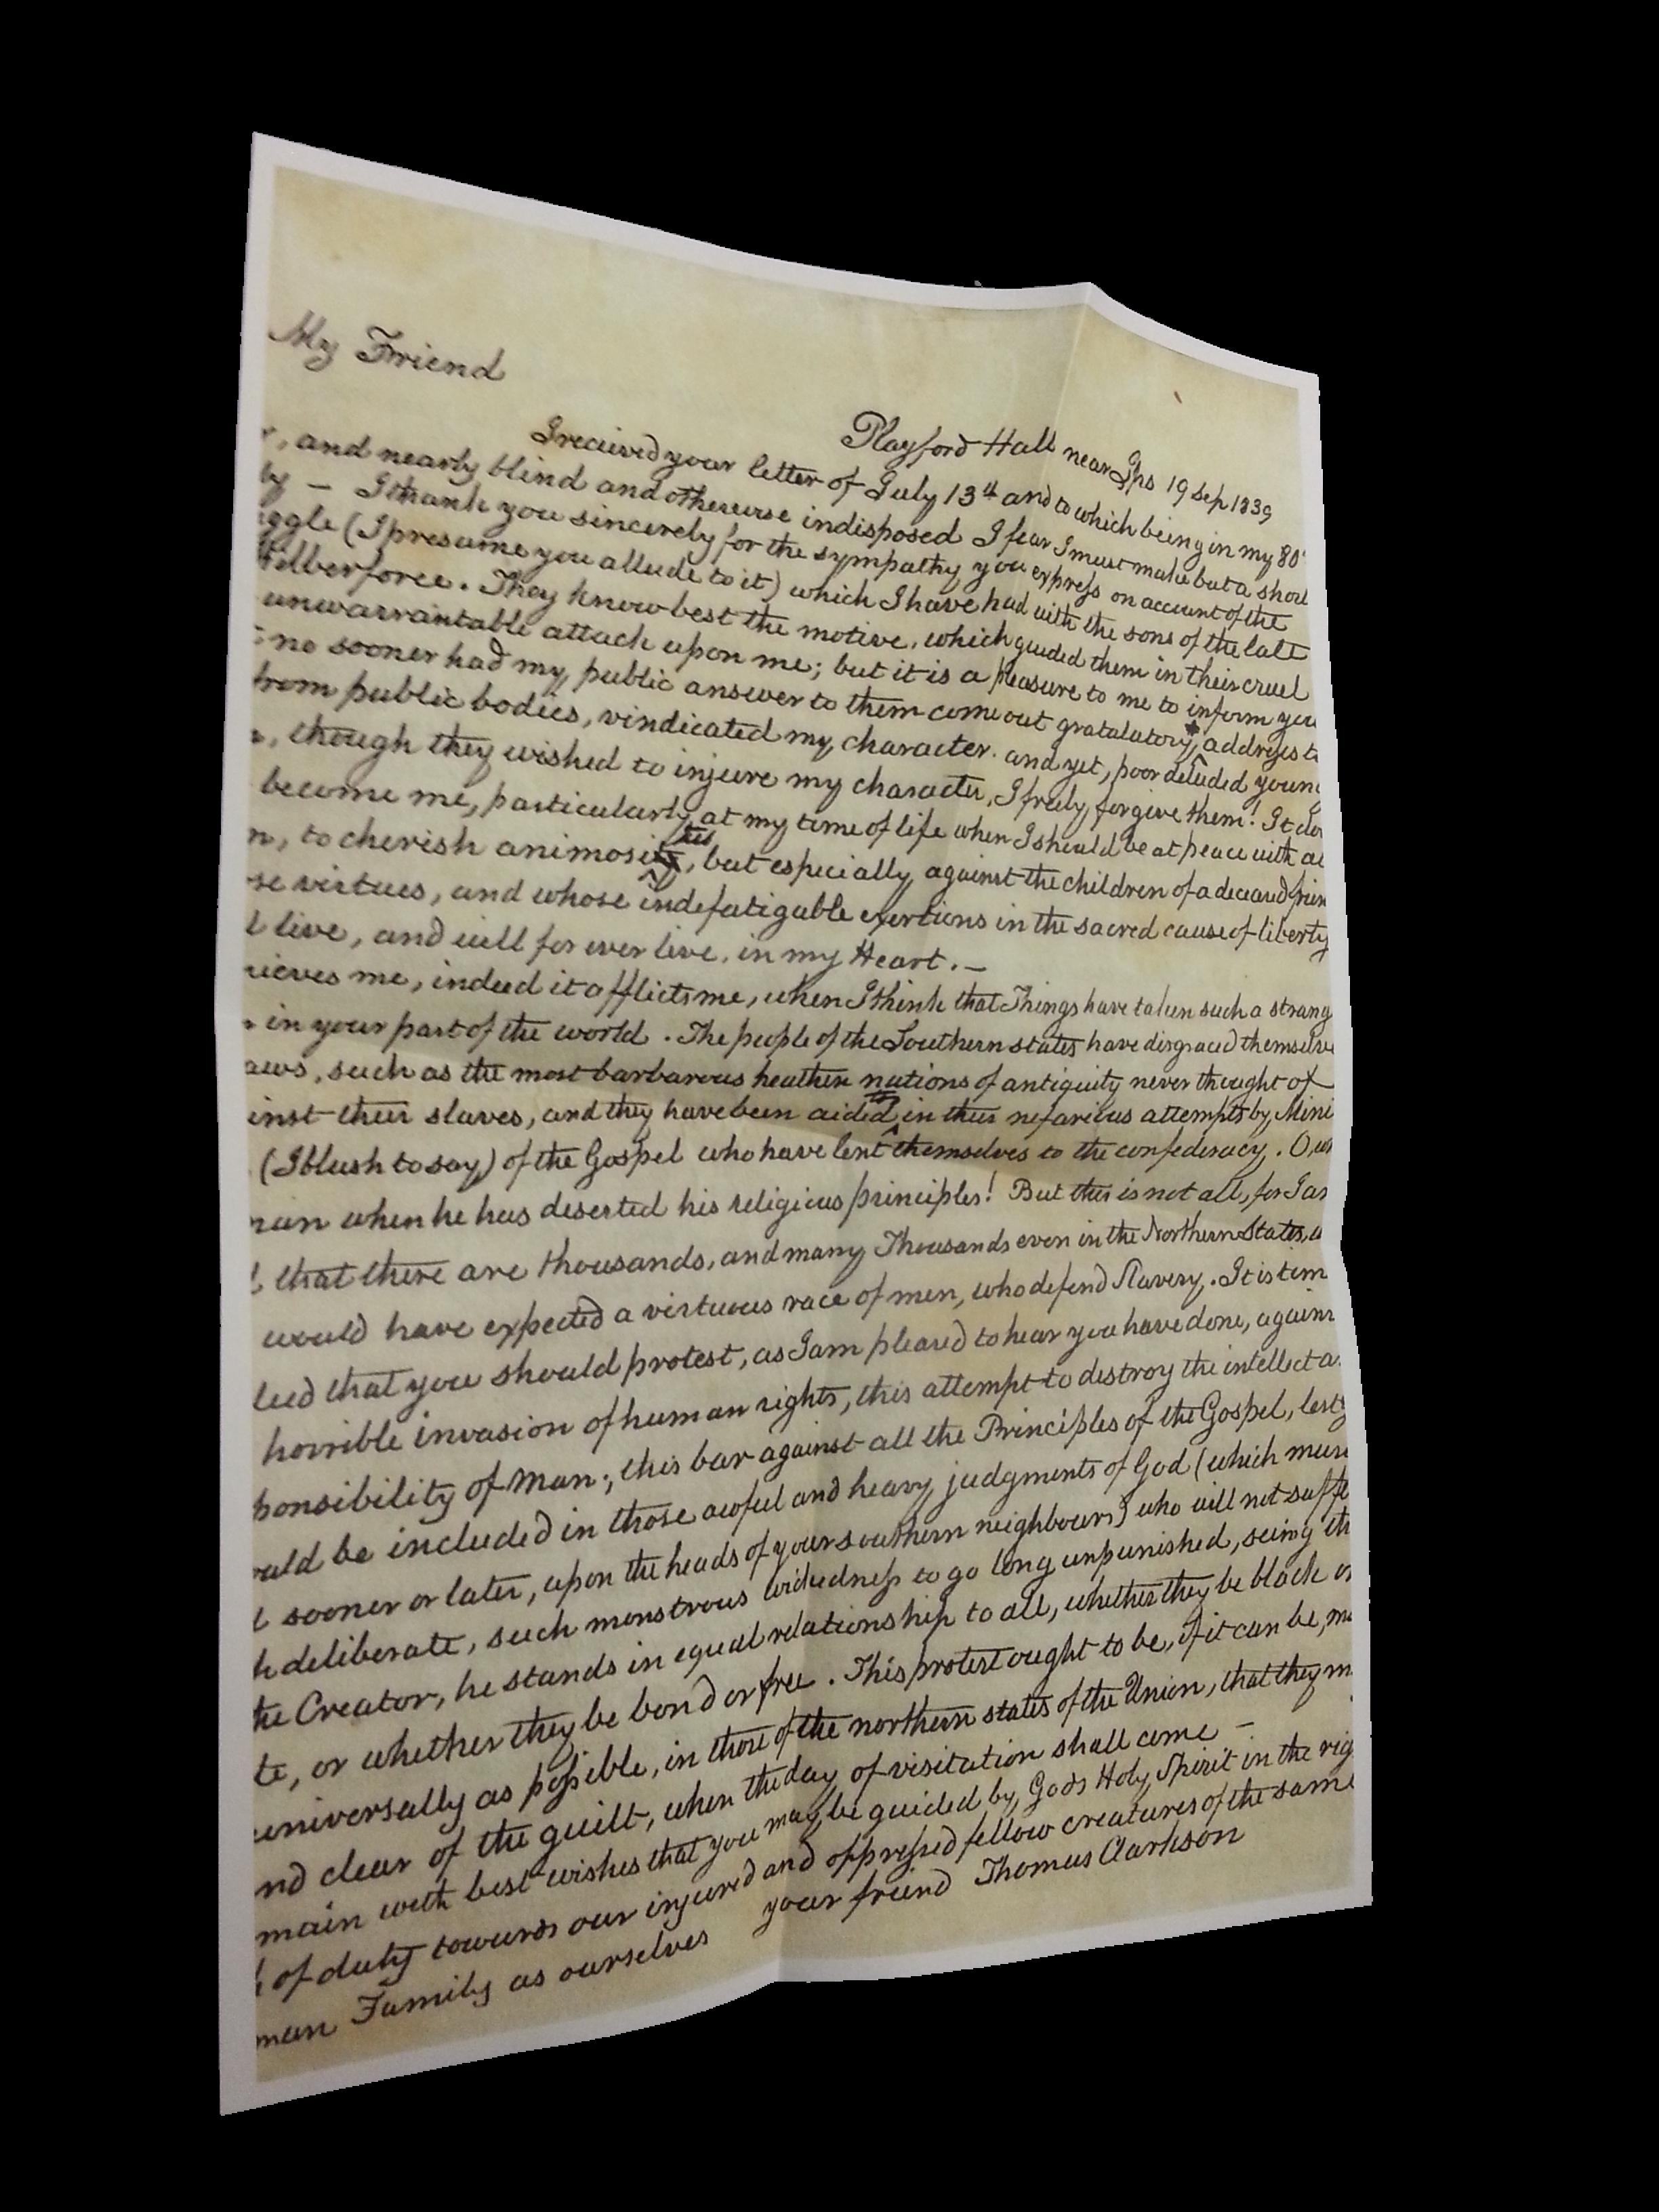 My Friend
Playford Hall near Ips 19 Sep 1839
I received your letter of July 13th and to which being in my 80
r, and nearly blind and otherwise indisposed I fear I must make but a short
ly — I thank you sincerely for the sympathy you express on account of the
uggle (I presume you allude to it) which I have had with the sons of the late
Wilberforce. They know best the motive, which guided them in their cruel
unwarrantable attack upon me; but it is a pleasure to me to inform you
t no sooner had my public answer to them come out gratulatory address t
from public bodies, vindicated my character. and yet, poor deluded young
n, though they wished to injure my character, I freely forgive them! It do
become me, particularly at my time of life when I should be at peace with al
n, to cherish animosities, but especially against the children of a deceased frien
se virtues, and whose indefatigable exertions in the sacred cause of liberty
l live, and will for ever live, in my Heart. —
rieves me, indeed it afflicts me, when I think that Things have taken such a strang
n in your part of the world. The people of the Southern states have disgraced themselve
aws, such as the most barbarous heathen nations of antiquity never thought of
inst their slaves, and they have been aided in their nefarious attempts by Mini
(I blush to say) of the Gospel who have lent themselves to the confederacy. O, w
man when he has deserted his religious principles! But this is not all, for I am
d that there are thousands, and many Thousands even in the Northern States, w
would have expected a virtuous race of men, who defend Slavery. It is tim
leed that you should protest, as I am pleased to hear you have done, again
horrible invasion of human rights, this attempt to destroy the intellect a
ponsibility of Man; this bar against all the Principles of the Gospel, lest y
ould be included in those awful and heavy judgments of God (which mus
t sooner or later, upon the heads of your southern neighbours) who will not suffe
h deliberate, such monstrous wickedness to go long unpunished, seeing th
the Creator, he stands in equal relationship to all, whether they be black or
te, or whether they be bond or free. This protest ought to be, if it can be, ma
universally as possible, in those of the northern states of the Union, that they m
nd clear of the guilt, when the day of visitation shall come —
main with best wishes that you may be guided by God's Holy Spirit in the rig
h of duty towards our injured and oppressed fellow creatures of the same
man Family as ourselves your friend Thomas Clarkson